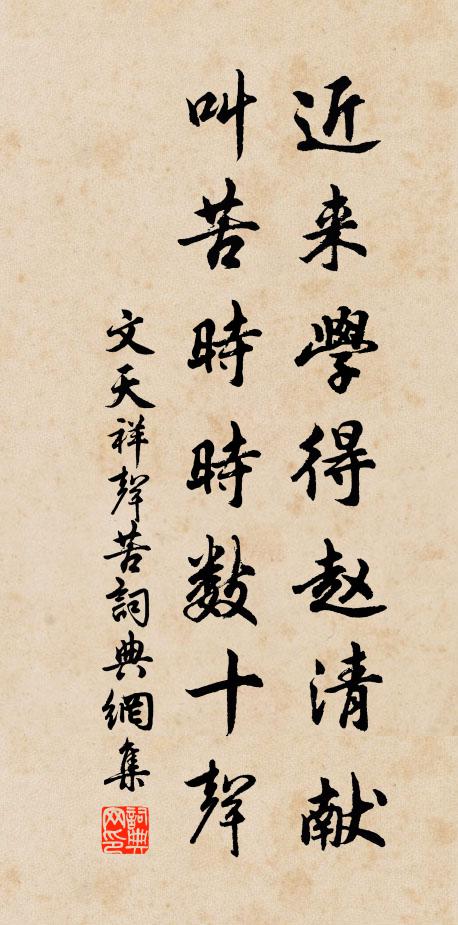 近来學得赵清献
叫苦時時數十聲
文天祥聲苦詞典網集
詞典网印